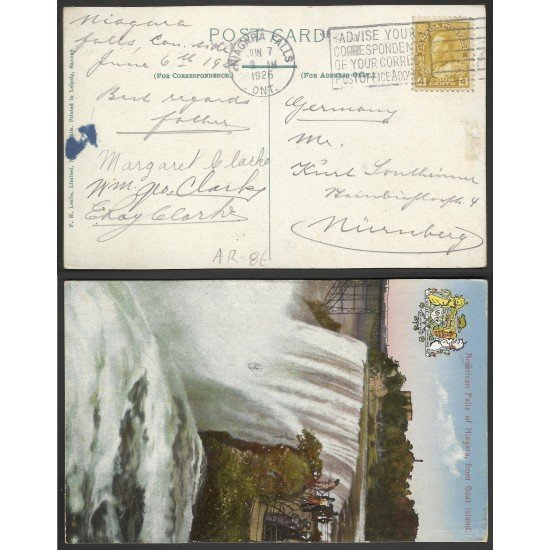 Niagara
falls, Can. side
June 6th
POST CARD
(FOR CORRESPONDENCE.)
(FOR ADDRESS ONLY.)
Best regards
father
Margaret Clarke
Wm. Geo. Clarke
Clarke
AR-8E
NIAGARA FALLS
JUN 7
AM
1926
ONT.
ADVISE YOUR
CORRESPONDEN
OF YOUR CORRE
POST OFFICE ADD
(Germany)
Mr.
Kurt
4
Nürnberg
F. H. Leslie, Limited,
Printed in Leipzig, Saxony
American Falls of Niagara, from Goat Island.